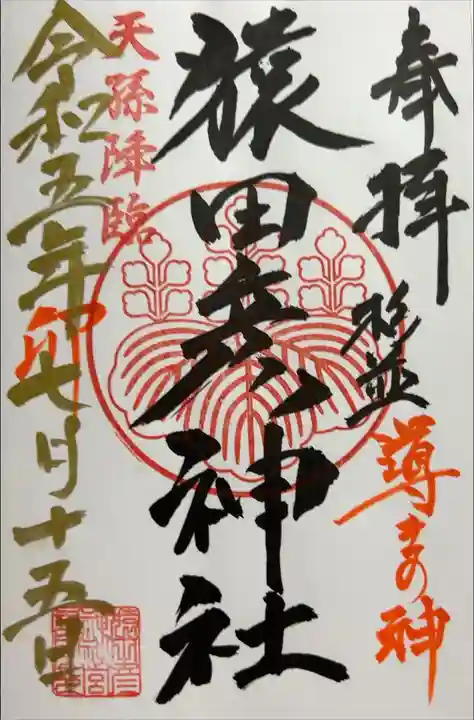 奉拝
杉並
導きの神
猿田彦神社
天孫降臨
卯
令和五年七月十五日